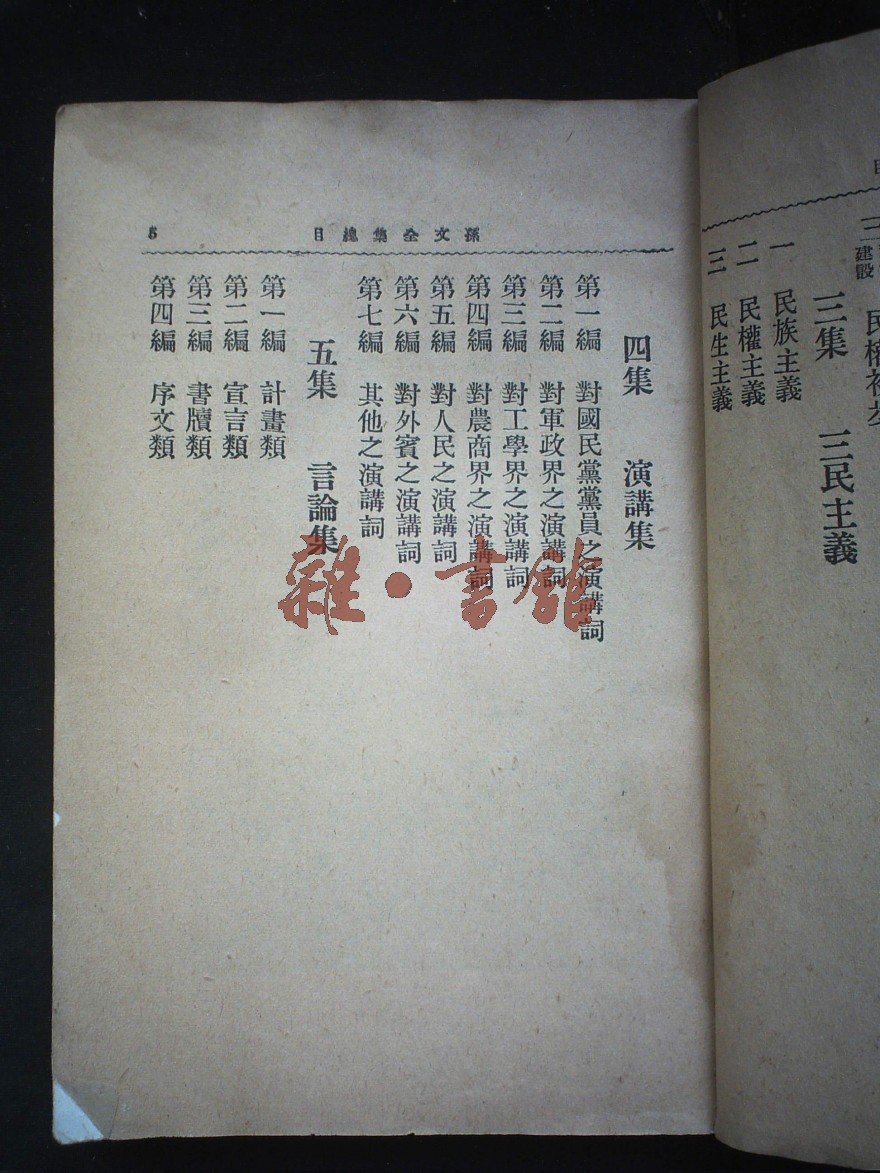 三 建設 民權初步
三集 三民主義
一 民族主義
二 民權主義
三 民生主義
孫文全集總目
5
四集 演講集
第一編 對國民黨黨員之演講詞
第二編 對軍政界之演講詞
第三編 對工學界之演講詞
第四編 對農商界之演講詞
第五編 對人民之演講詞
第六編 對外賓之演講詞
第七編 其他之演講詞
五集 言論集
第一編 計畫類
第二編 宣言類
第三編 書牘類
第四編 序文類
雜·書館